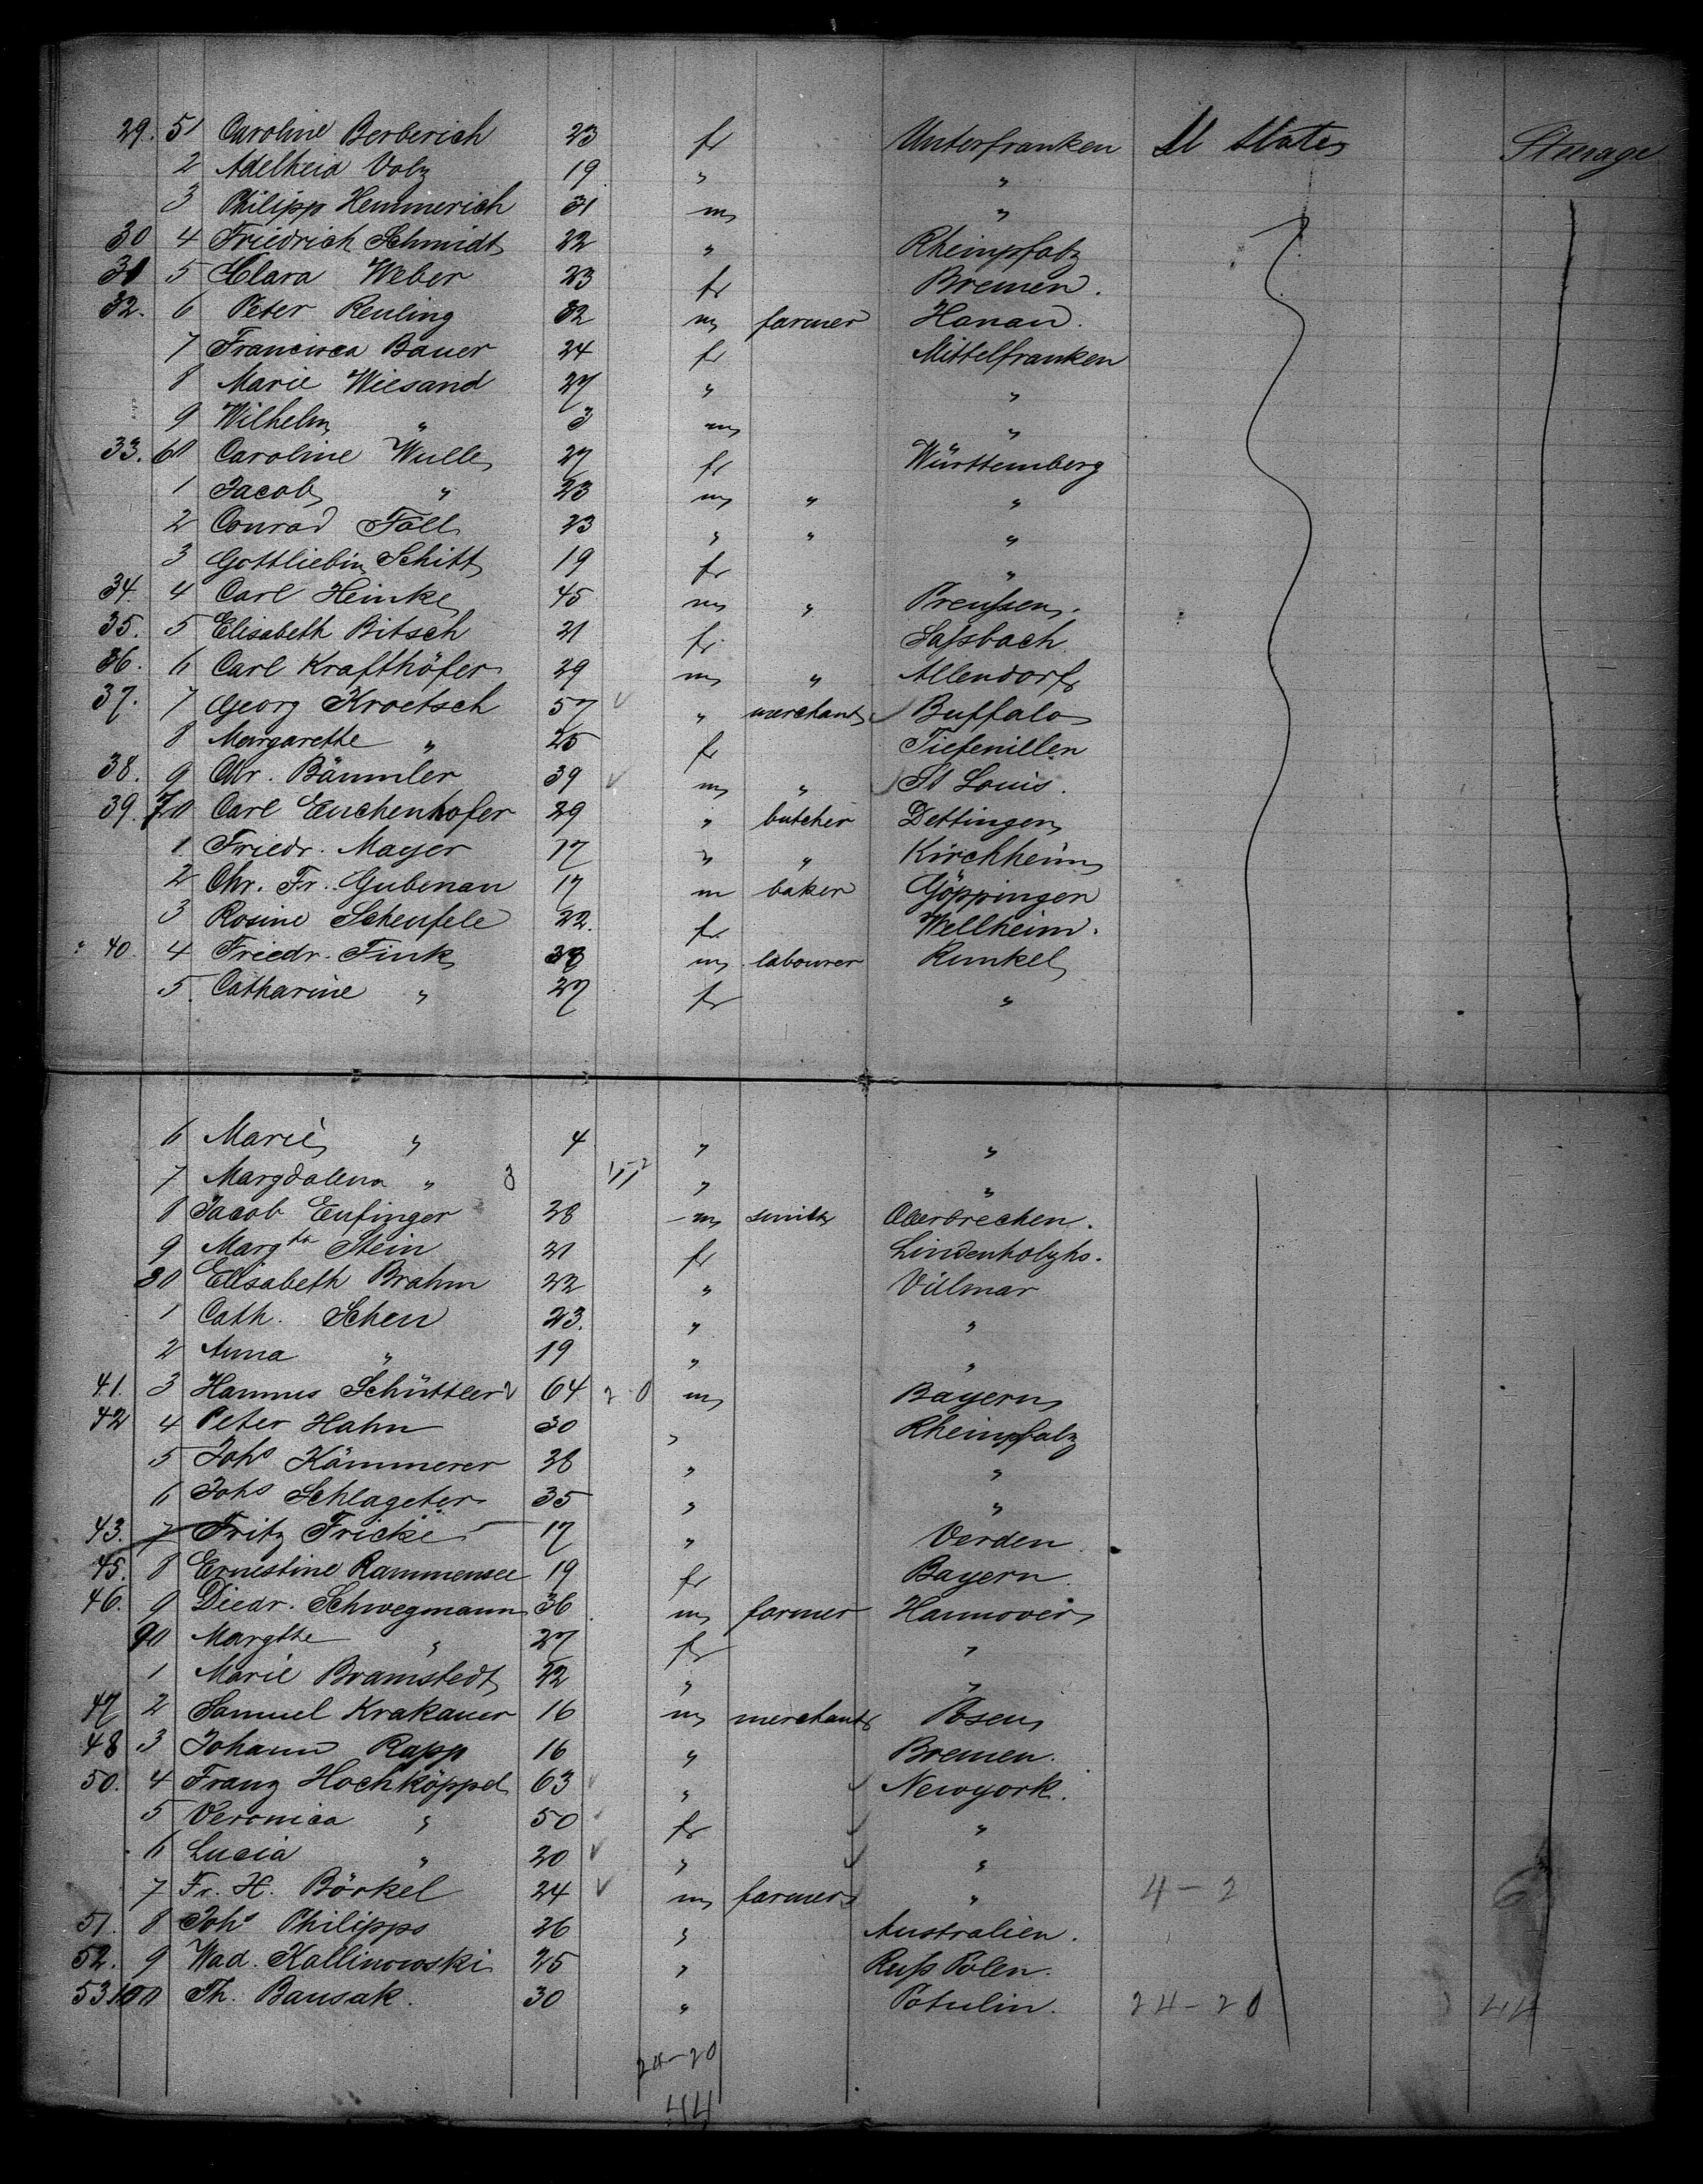 29. 51 Caroline Berberich 23 fr Unterfranken U States Steerage
2 Adelheid Volz 19 " "
3 Philipp Hemmerich 31 m "
30 4 Friedrich Schmidt 22 " Rheinpfalz
31 5 Clara Weber 23 fr Bremen.
32. 6 Peter Reuling 32 m farmer Hanau.
7 Francisca Bauer 24 fr Mittelfranken
8 Marie Wiesand 27 " "
9 Wilhelm " 3 m "
33. 60 Caroline Wulle 27 fr Württemberg
1 Jacob " 23 m " "
2 Conrad Föll 23 " " "
3 Gottliebin Schitt 19 fr "
34. 4 Carl Heinke 45 m " Preußen.
35. 5 Elisabeth Bitsch 21 fr. Saßbach
36. 6 Carl Krafthöfer 29 m " Allendorf
37. 7 Georg Kroetsch 57 " merchant Buffalo
8 Margarethe " 25 fr Tiefenillen
38. 9 Chr. Bämmler 39 m " St Louis.
39. 70 Carl Euchenhofer 29 " butcher Dettingen
1. Friedr. Mayer 17 " " Kirchheim
2 Chr. Fr. Gubenau 17 m baker Göppingen
3 Rosine Scheufele 22. fr. Wellheim.
40. 4 Friedr. Fink 33 m labourer Runkel
5. Catharine " 27 fr "
6 Marie " 4 " "
7 Margdalena " 3 " "
8 Jacob Eufinger 28 m smith Oberbrechen.
9 Margth Stein 21 fr Lindenholzhs.
80 Elisabeth Brahm 22 " Villmar
1 Cath. Scheu 23. " "
2 Anna " 19 " "
41. 3 Hannus Schüttler 64 2 0 m Bayern
42 4 Peter Hahn 30 " Rheinpfalz
5 Johs Kämmerer 28 " "
6 Johs Schlageter 35 " "
43. 7 Fritz Fricke 17 " Verden
45. 8 Ernestine Rammensee 19 fr Bayern.
46. 9 Diedr. Schwegmann 36 m farmer Hannover
90 Margthe " 27 fr "
1 Marie Bramstedt 22 " "
47 2 Samuel Krakauer 16 m merchant Posen
48 3 Johann Rapp 16 " Bremen.
50. 4 Franz Hochköppel 63 " Newyork.
5 Veronica " 50 fr "
6 Lucia " 20 " "
7 Fr. H. Börkel 24 m farmer " 4-2 6
51. 8 Johs Philipps 26 " Australien.
52. 9 Wad. Kallinowski 25 " Ruß Polen.
53. 100 Th. Bausak. 30 " Potulin. 24-20 44
24-20
44